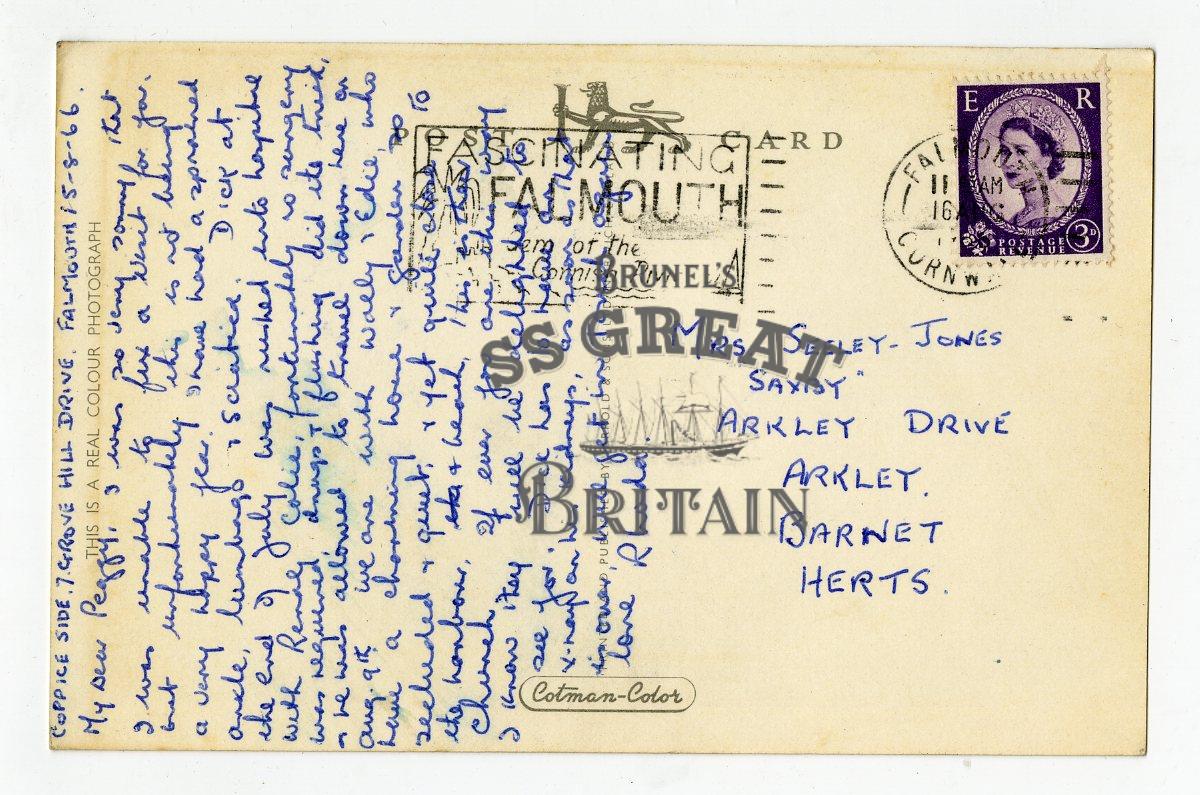 COPPICE SIDE. 7. GROVE HILL DRIVE. FALMOUTH 15-8-66.
My Dear Peggy, I was so very sorry that
I was unable to fix a visit for you.
but unfortunately this is not being
a very happy year. I have had a sprained
ankle, lumbago, & Sciatica. Dick at
the end of July was rushed into hospital
with Renal Colic, fortunately no surgery
was required drugs & flushing did its trick,
& he was allowed to travel down here on
Aug 9th we are with Wally & Edie, who
have a charming house & garden so
secluded & quiet, & yet quite close to
the harbour, & beach,
Church. If ever you are this way
I know they will be delighted to
see you. Dick has to have
x-ray on kidneys, as soon as that
is over, I will get in touch
love Rhoda.
THIS IS A REAL COLOUR PHOTOGRAPH
POST CARD
FASCINATING
FALMOUTH
Gem of the
Cornish
FALMOUTH
11 AM
16
CORNWALL
E R
POSTAGE
REVENUE
3D
BRUNEL'S
SS GREAT
BRITAIN
Mrs SEELEY-JONES
"SAXBY"
ARKLEY DRIVE
ARKLEY.
BARNET
HERTS.
Cotman-Color